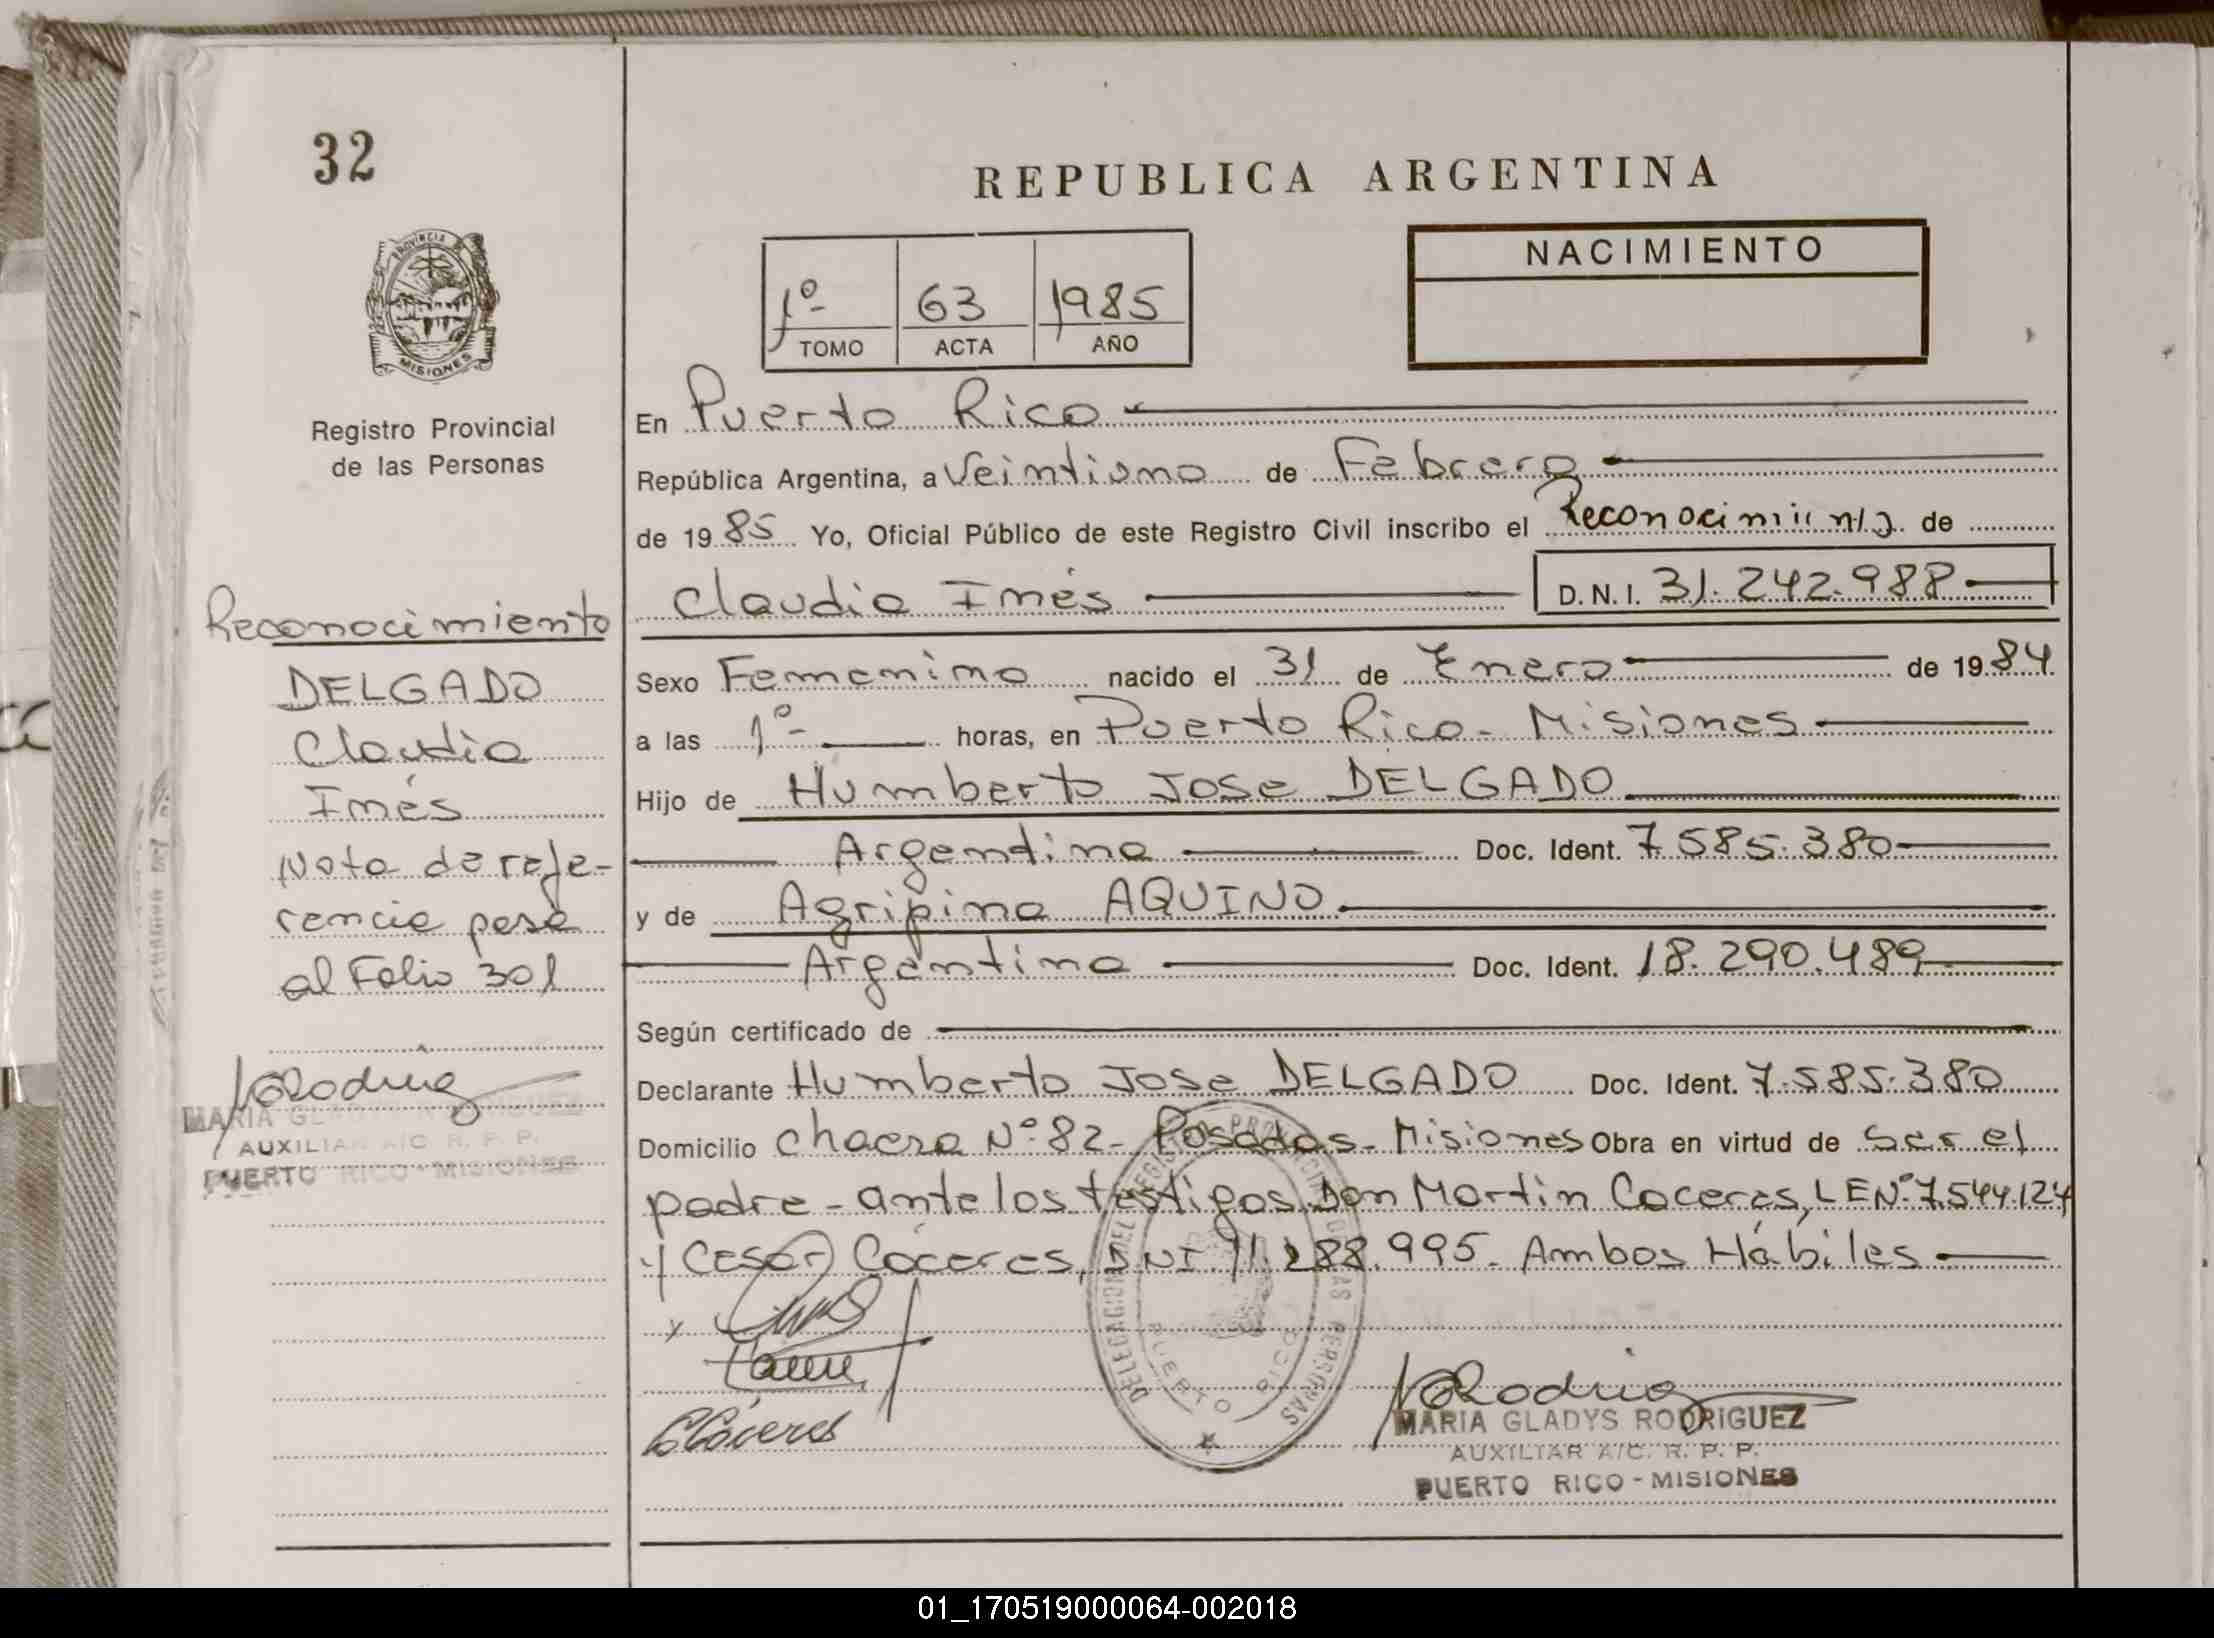 32
REPUBLICA ARGENTINA
PROVINCIA
MISIONES
Registro Provincial
de las Personas
1º 63 1985
TOMO ACTA AÑO
NACIMIENTO
En Puerto Rico
República Argentina, a Veintiuno de Febrero
de 1985 Yo, Oficial Público de este Registro Civil inscribo el Reconocimiento de
Claudia Inés D.N.I. 31.242.988
Sexo Femenino nacido el 31 de Enero de 1984
a las 1º horas, en Puerto Rico - Misiones
Hijo de Humberto Jose DELGADO
Argentina Doc. Ident. 7.585.380
y de Agripina AQUINO
Argentina Doc. Ident. 18.290.489
Según certificado de
Declarante Humberto Jose DELGADO Doc. Ident. 7.585.380
Domicilio Chacra Nº 82 - Posadas - Misiones Obra en virtud de Ser el
padre - ante los testigos Don Martin Caceres, LE Nº 7.544.124
y Cesar Cáceres, DNI 11.288.995. Ambos Hábiles
Reconocimiento
DELGADO
Claudia
Inés
Nota de refe-
rencia pase
al Folio 301
MARIA GLADYS RODRIGUEZ
AUXILIAR A/C R. P. P.
PUERTO RICO - MISIONES
DELEGACION DEL REGISTRO PROVINCIAL DE LAS PERSONAS
PUERTO RICO
C Cáceres
MARIA GLADYS RODRIGUEZ
AUXILIAR A/C. R. P. P.
PUERTO RICO - MISIONES
01_170519000064-002018